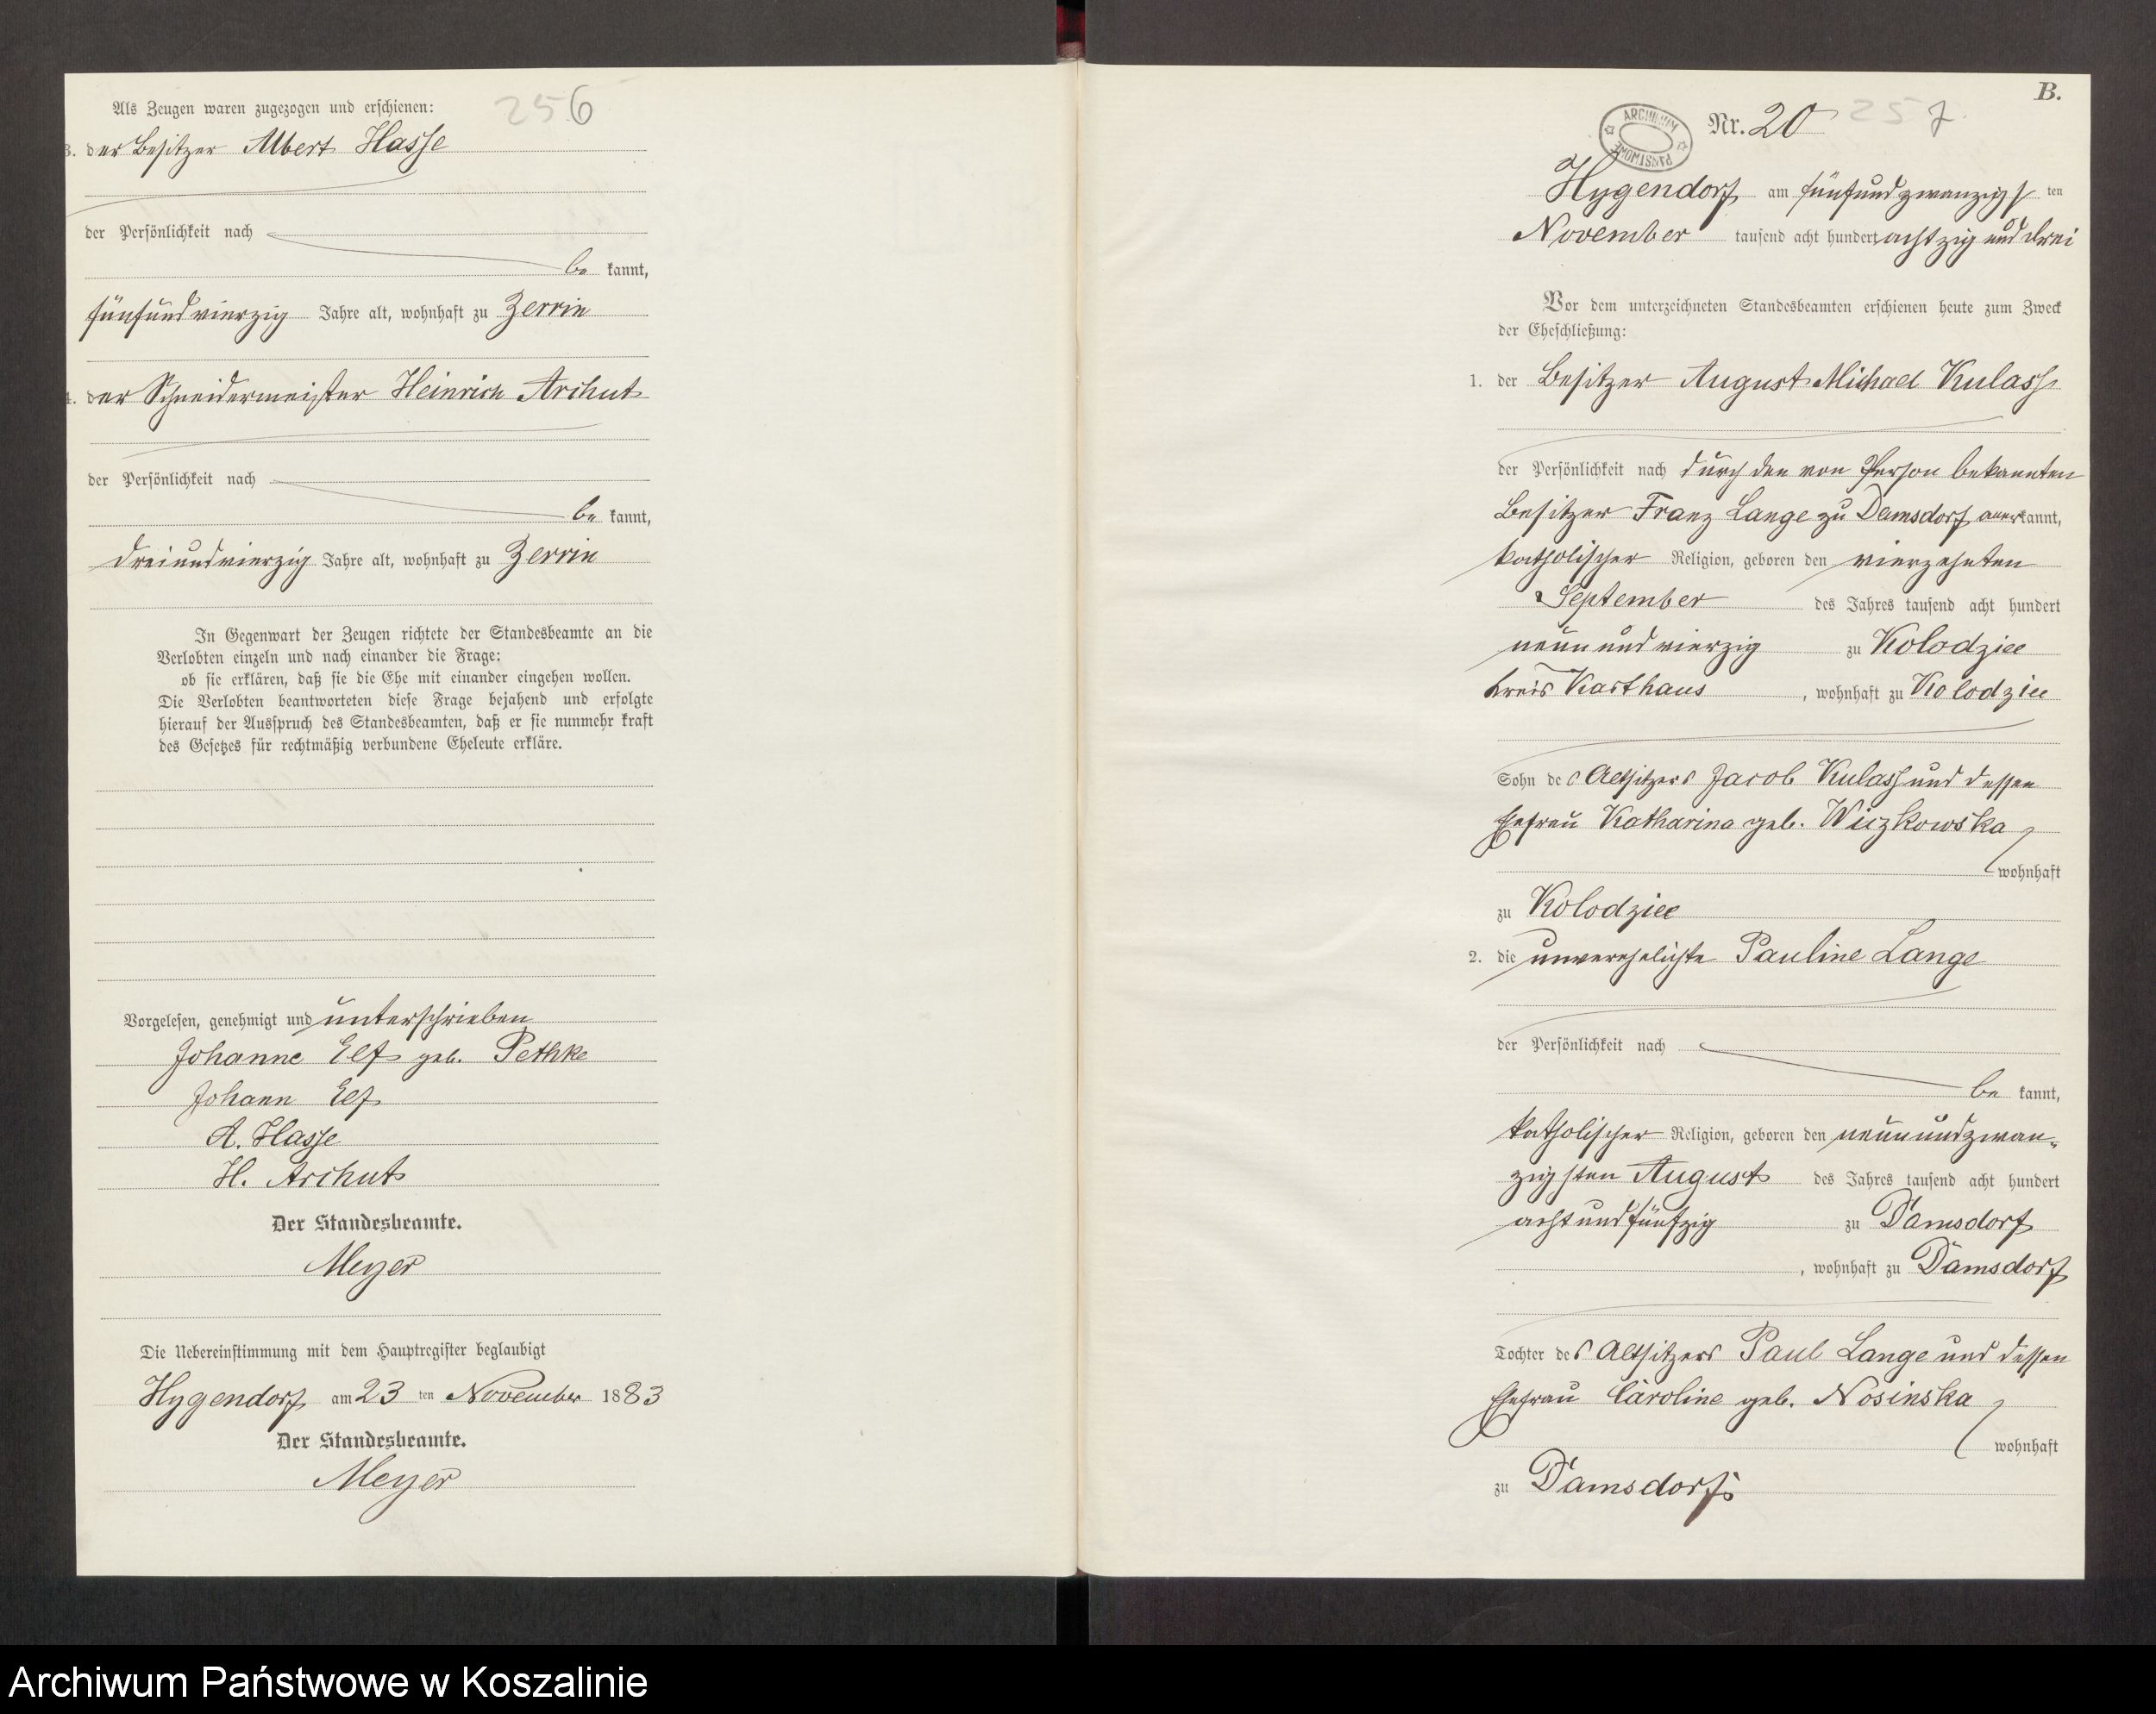 256
Als Zeugen waren zugezogen und erschienen:
3. der Besitzer Albert Hasse
der Persönlichkeit nach
be kannt,
fünfundvierzig Jahre alt, wohnhaft zu Zerrin
4. der Schneidermeister Heinrich Archut
der Persönlichkeit nach
be kannt,
dreiundvierzig Jahre alt, wohnhaft zu Zerrin
In Gegenwart der Zeugen richtete der Standesbeamte an die
Verlobten einzeln und nach einander die Frage:
ob sie erklären, daß sie die Ehe mit einander eingehen wollen.
Die Verlobten beantworteten diese Frage bejahend und erfolgte
hierauf der Ausspruch des Standesbeamten, daß er sie nunmehr kraft
des Gesetzes für rechtmäßig verbundene Eheleute erkläre.
Vorgelesen, genehmigt und unterschrieben
Johanne Elf geb. Pethke
Johann Elf
A. Hasse
H. Archut
Der Standesbeamte.
Meyer
Die Uebereinstimmung mit dem Hauptregister beglaubigt
Hygendorf am 23 ten November 1883
Der Standesbeamte.
Meyer
B.
ARCHIWUM PAŃSTWOWE
Nr. 20 257
Hygendorf am fünfundzwanzigs ten
November tausend acht hundert achtzig und drei
Vor dem unterzeichneten Standesbeamten erschienen heute zum Zweck
der Eheschließung:
1. der Besitzer August Michael Kulass
der Persönlichkeit nach durch den von Person bekannten
Besitzer Franz Lange zu Damsdorf anerkannt,
katholischer Religion, geboren den vierzehnten
September des Jahres tausend acht hundert
neun und vierzig zu Kolodziee
Kreis Karthaus, wohnhaft zu Kolodziee
Sohn des Altsitzers Jacob Kulass und dessen
Ehefrau Katharina geb. Wiczkowska
wohnhaft
zu Kolodziee
2. die unverehelichte Pauline Lange
der Persönlichkeit nach
be kannt,
katholischer Religion, geboren den neunundzwan-
zigsten August des Jahres tausend acht hundert
achtundfünfzig zu Damsdorf
, wohnhaft zu Damsdorf
Tochter des Altsitzers Paul Lange und dessen
Ehefrau Caroline geb. Nosinska
wohnhaft
zu Damsdorf.
Archiwum Państwowe w Koszalinie